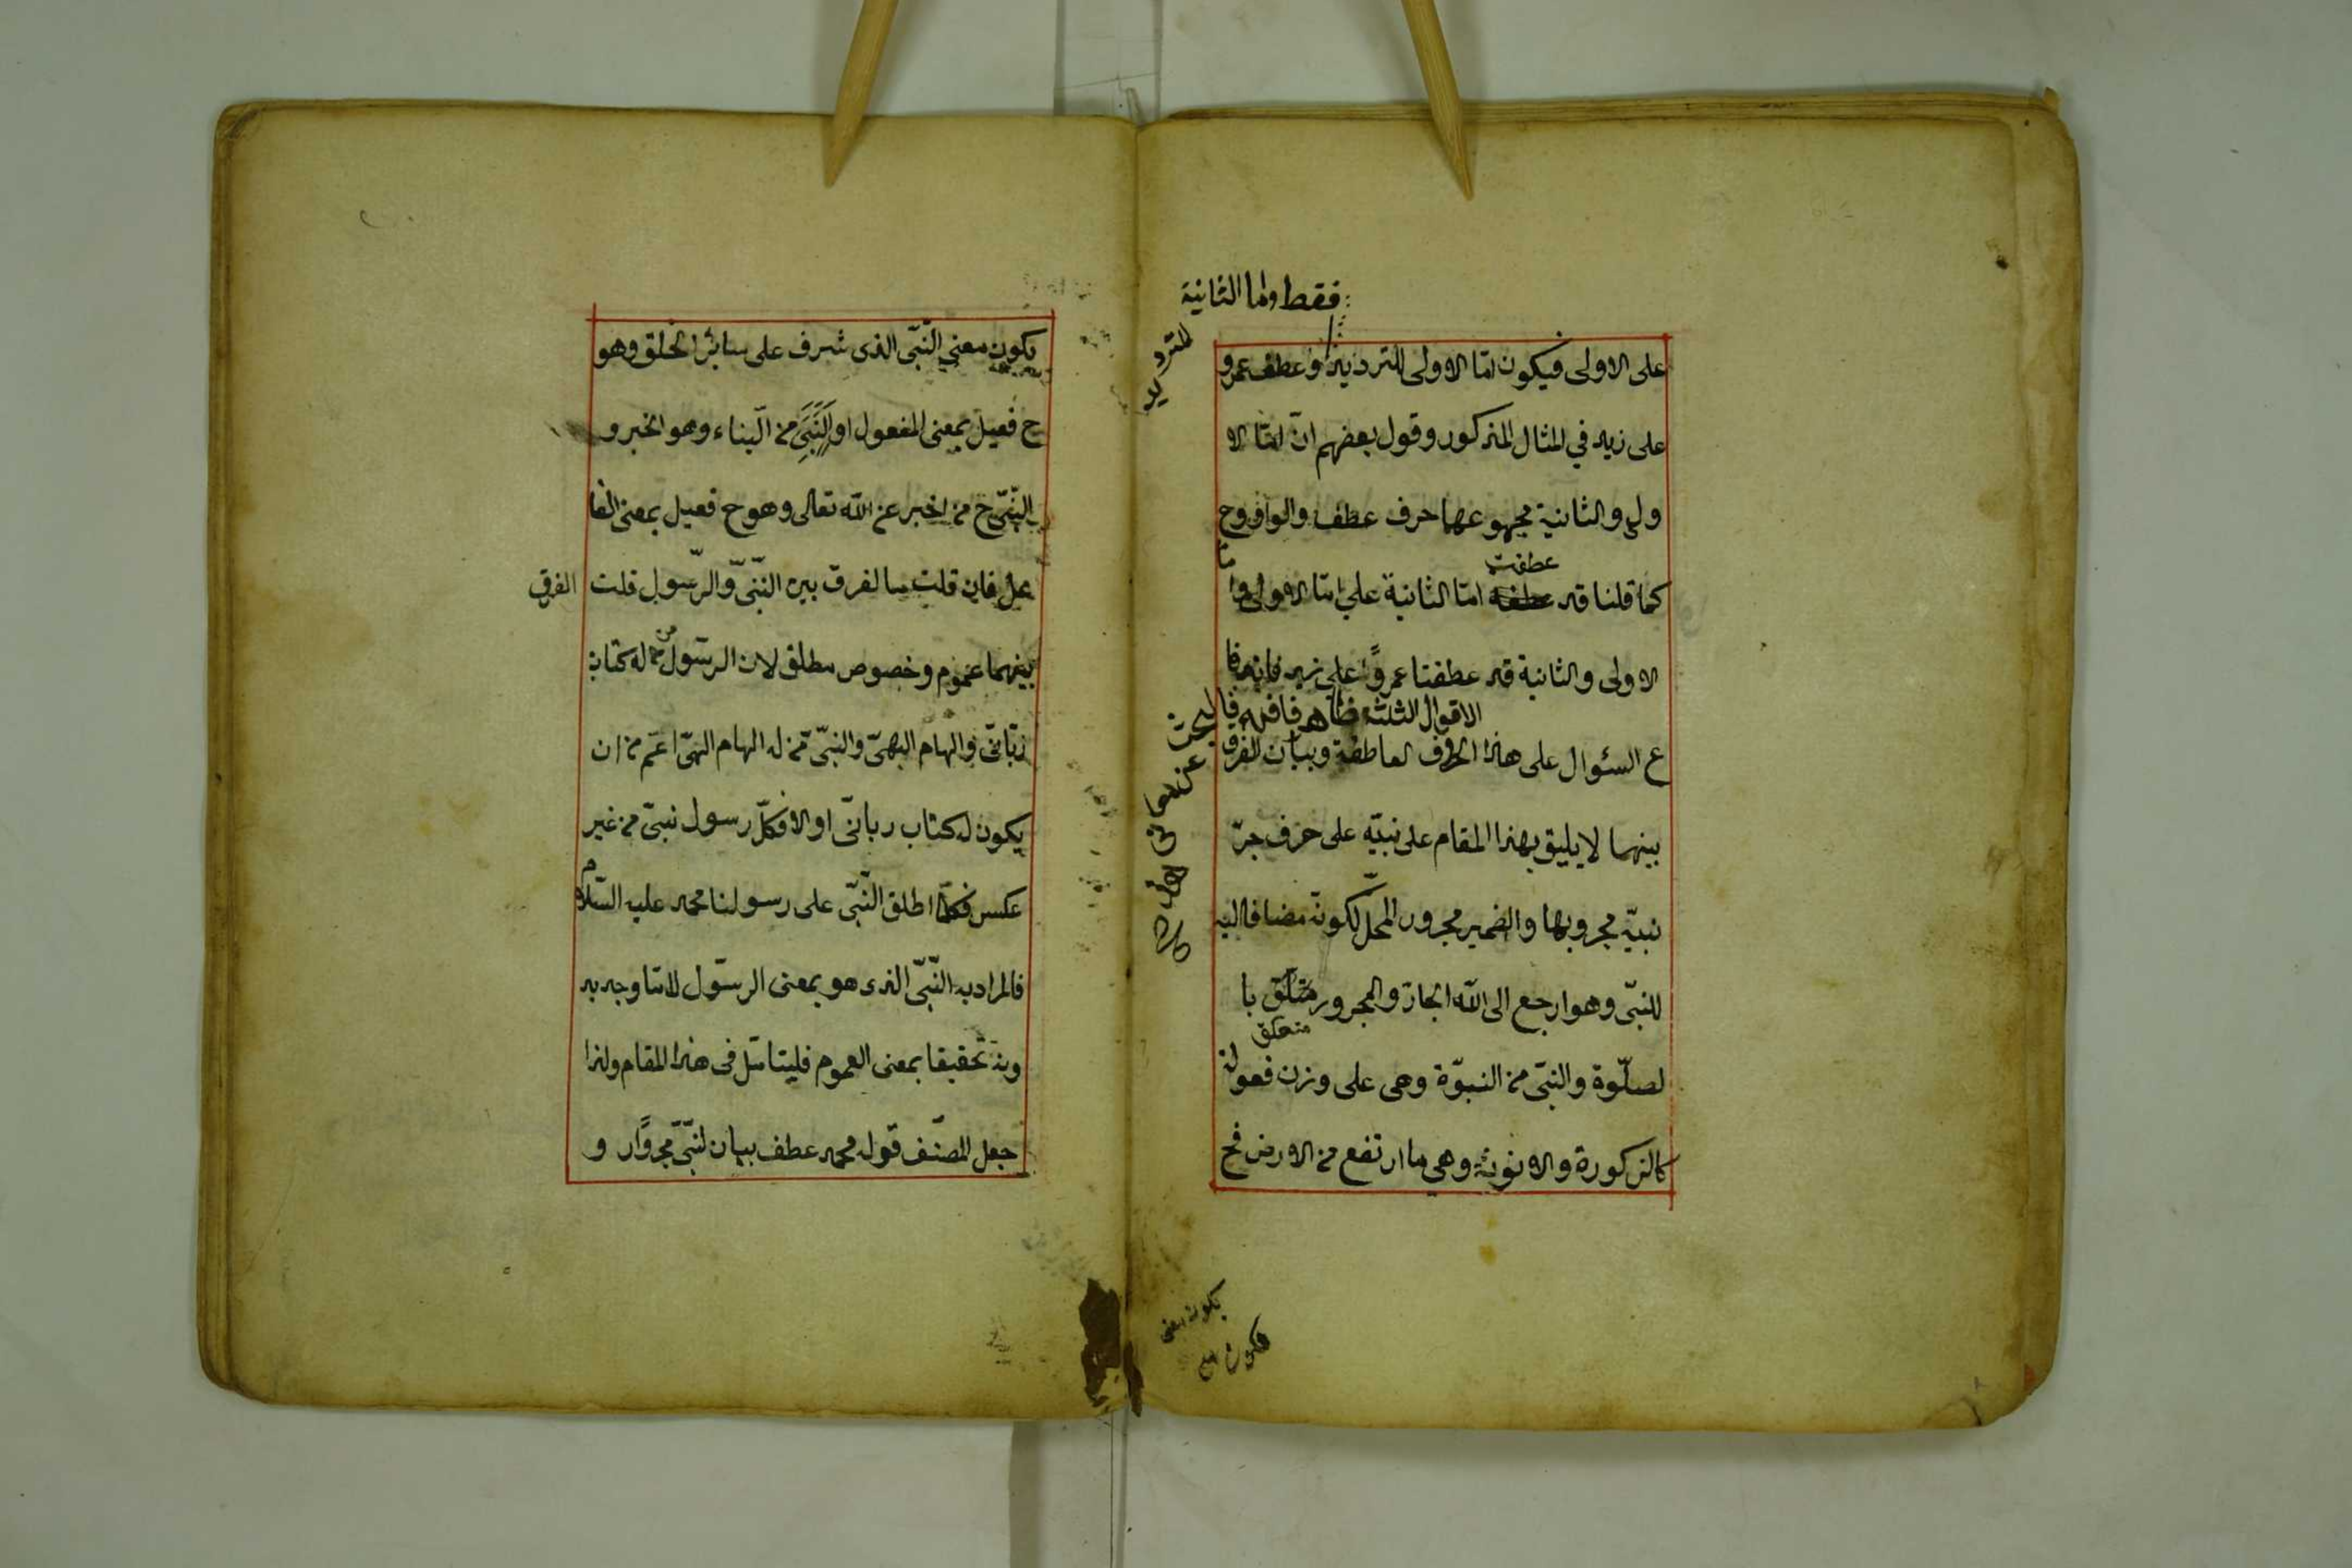 فقط واما الثانية
للترديد
على الاولى فيكون امّا الاولى للترديد وعطف عمرو
على زيد في المثال المذكور وقول بعضهم انّ امّا الا
ولى والثانية مجموعهما حرف عطف والواو وح
عطفت
كما قلنا قد امّا الثانية على امّا الاولى واما
الاولى والثانية قد عطفتا عمروًا على زيد فاندفا
الاقوال الثلثة ظاهر فافهم
ع السئوال على هذا الحروف العاطفة وبيان الفرق
بينهما لا يليق بهذا المقام على نبيّه على حرف جرّ
نبيّه مجرور بها والضمير مجرور المحلّ لكونه مضافا اليه
للنبىّ وهو ارجع الى اللّه الجارّ والمجرور متعلّق با
متعلق
لصلّوة والنبىّ من النبوّة وهى على وزن فعولة
كالذكورة والانوثة وهى ما ارتفع من الارض فح
يكون معنى
فيكون
يكون معنى النّبىّ الذى شرف على سائر الخلق وهو
ح فعيل بمعنى المفعول او النّبىّ من النّباء وهو الخبر و
النّبىّ ح من اخبر عن اللّه تعالى وهو ح فعيل بمعنى الفا
عل فان قلت ما الفرق بين النّبىّ والرّسول قلت
الفرق
بينهما عموم وخصوص مطلق لان الرسّول من له كتاب
ربّانىّ والهام الهىّ والنبىّ من له الهام الهىّ اعمّ من ان
يكون له كتاب ربانىّ او لا فكلّ رسول نبىّ من غير
عكس فكلّما اطلق النّبىّ على رسولنا محمد عليه السّلام
فالمراد به النّبىّ الذى هو بمعنى الرسّول لا ما وجد به
ونه تحقيقا بمعنى العموم فليتامّل فى هذا المقام ولذا
جعل المصنّف قوله محمد عطف بيان لنبىّ مجروًار و